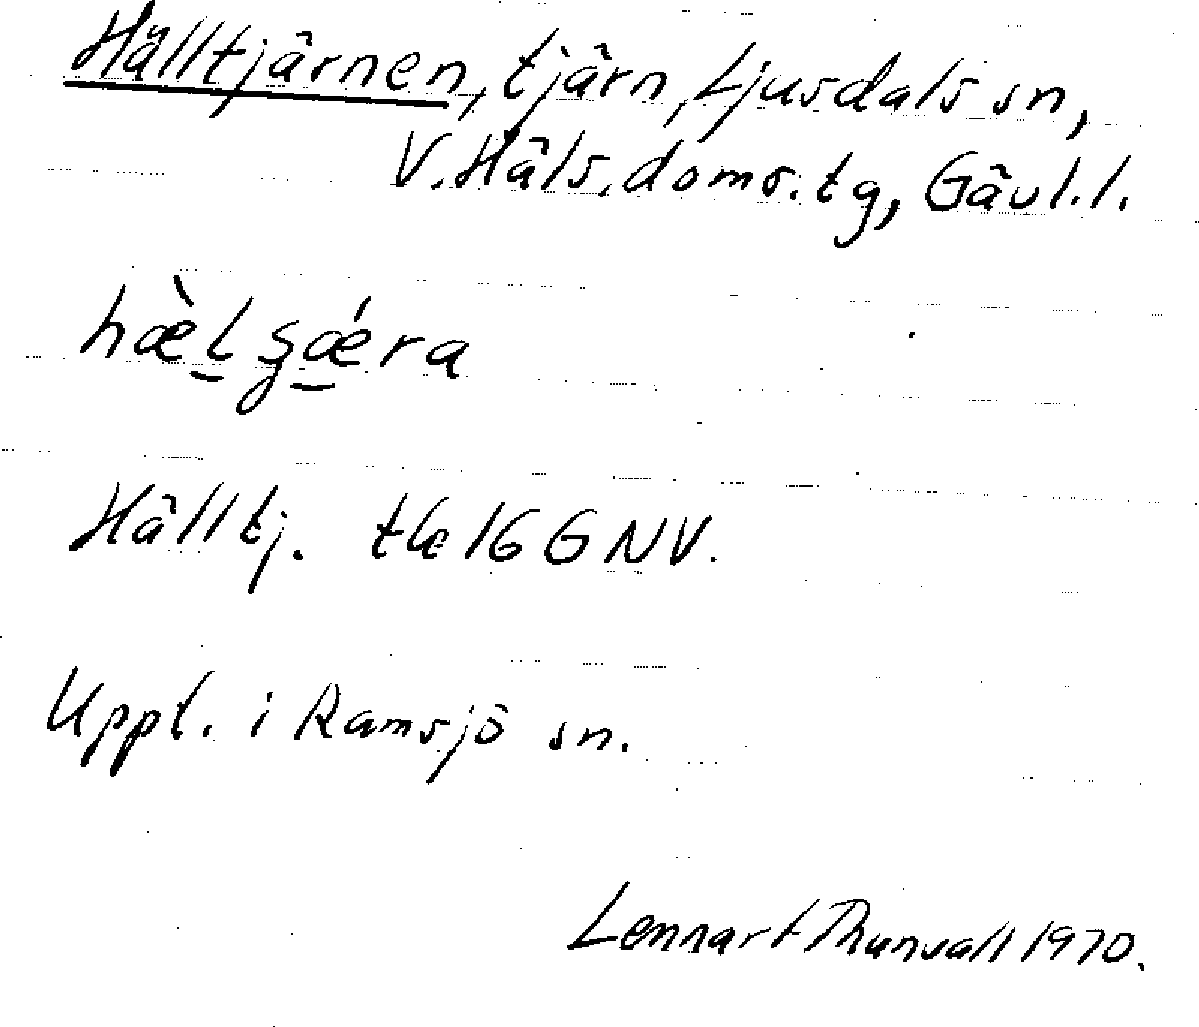 Hälltjärnen, tjärn, Ljusdals sn,
V. Häls. doms. tg, Gävl. l.
hæ̀l̠ʒǽ̠ra
Hälltj. tk 16 G NV.
Uppt. i Ramsjö sn.
Lennart Thunvall 1970.